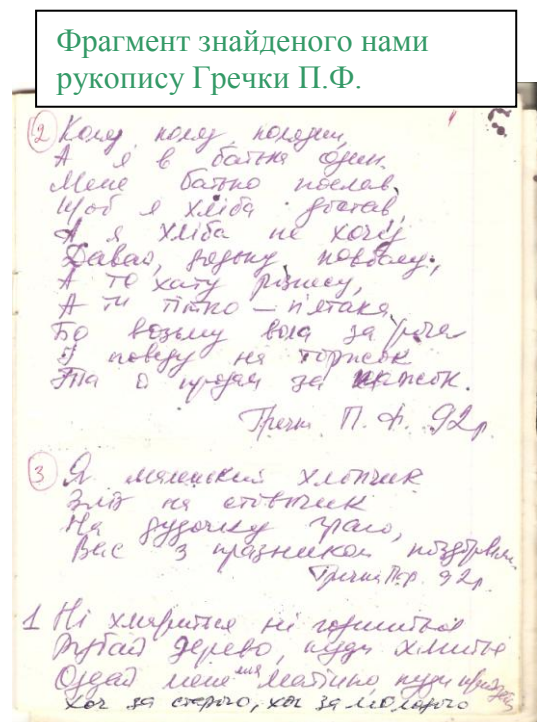 Фрагмент знайденого нами
рукопису Гречки П.Ф.
2 Коляд, коляд, колядин,
А я в батька один.
Мене батько послав,
Щоб я хліба достав,
А я хліба не хочу
Давай, дядьку, ковбасу,
А то хату рознесу,
А ти тітко – п'ятака
Бо візьму вола за роги
І поведу на торжок
Та й продам за
Гречка П. Ф. 92р.
3 Я маленький хлопчик
Зліз на стовпчик
На дудочку граю,
Вас з празником поздоровляю
Гречка П.Ф. 92р.
1 Ні хмариться ні
Рубай дерево, куди хилиться
Оддай мене матінко, куди
Хоч за старого, хоч за молодого